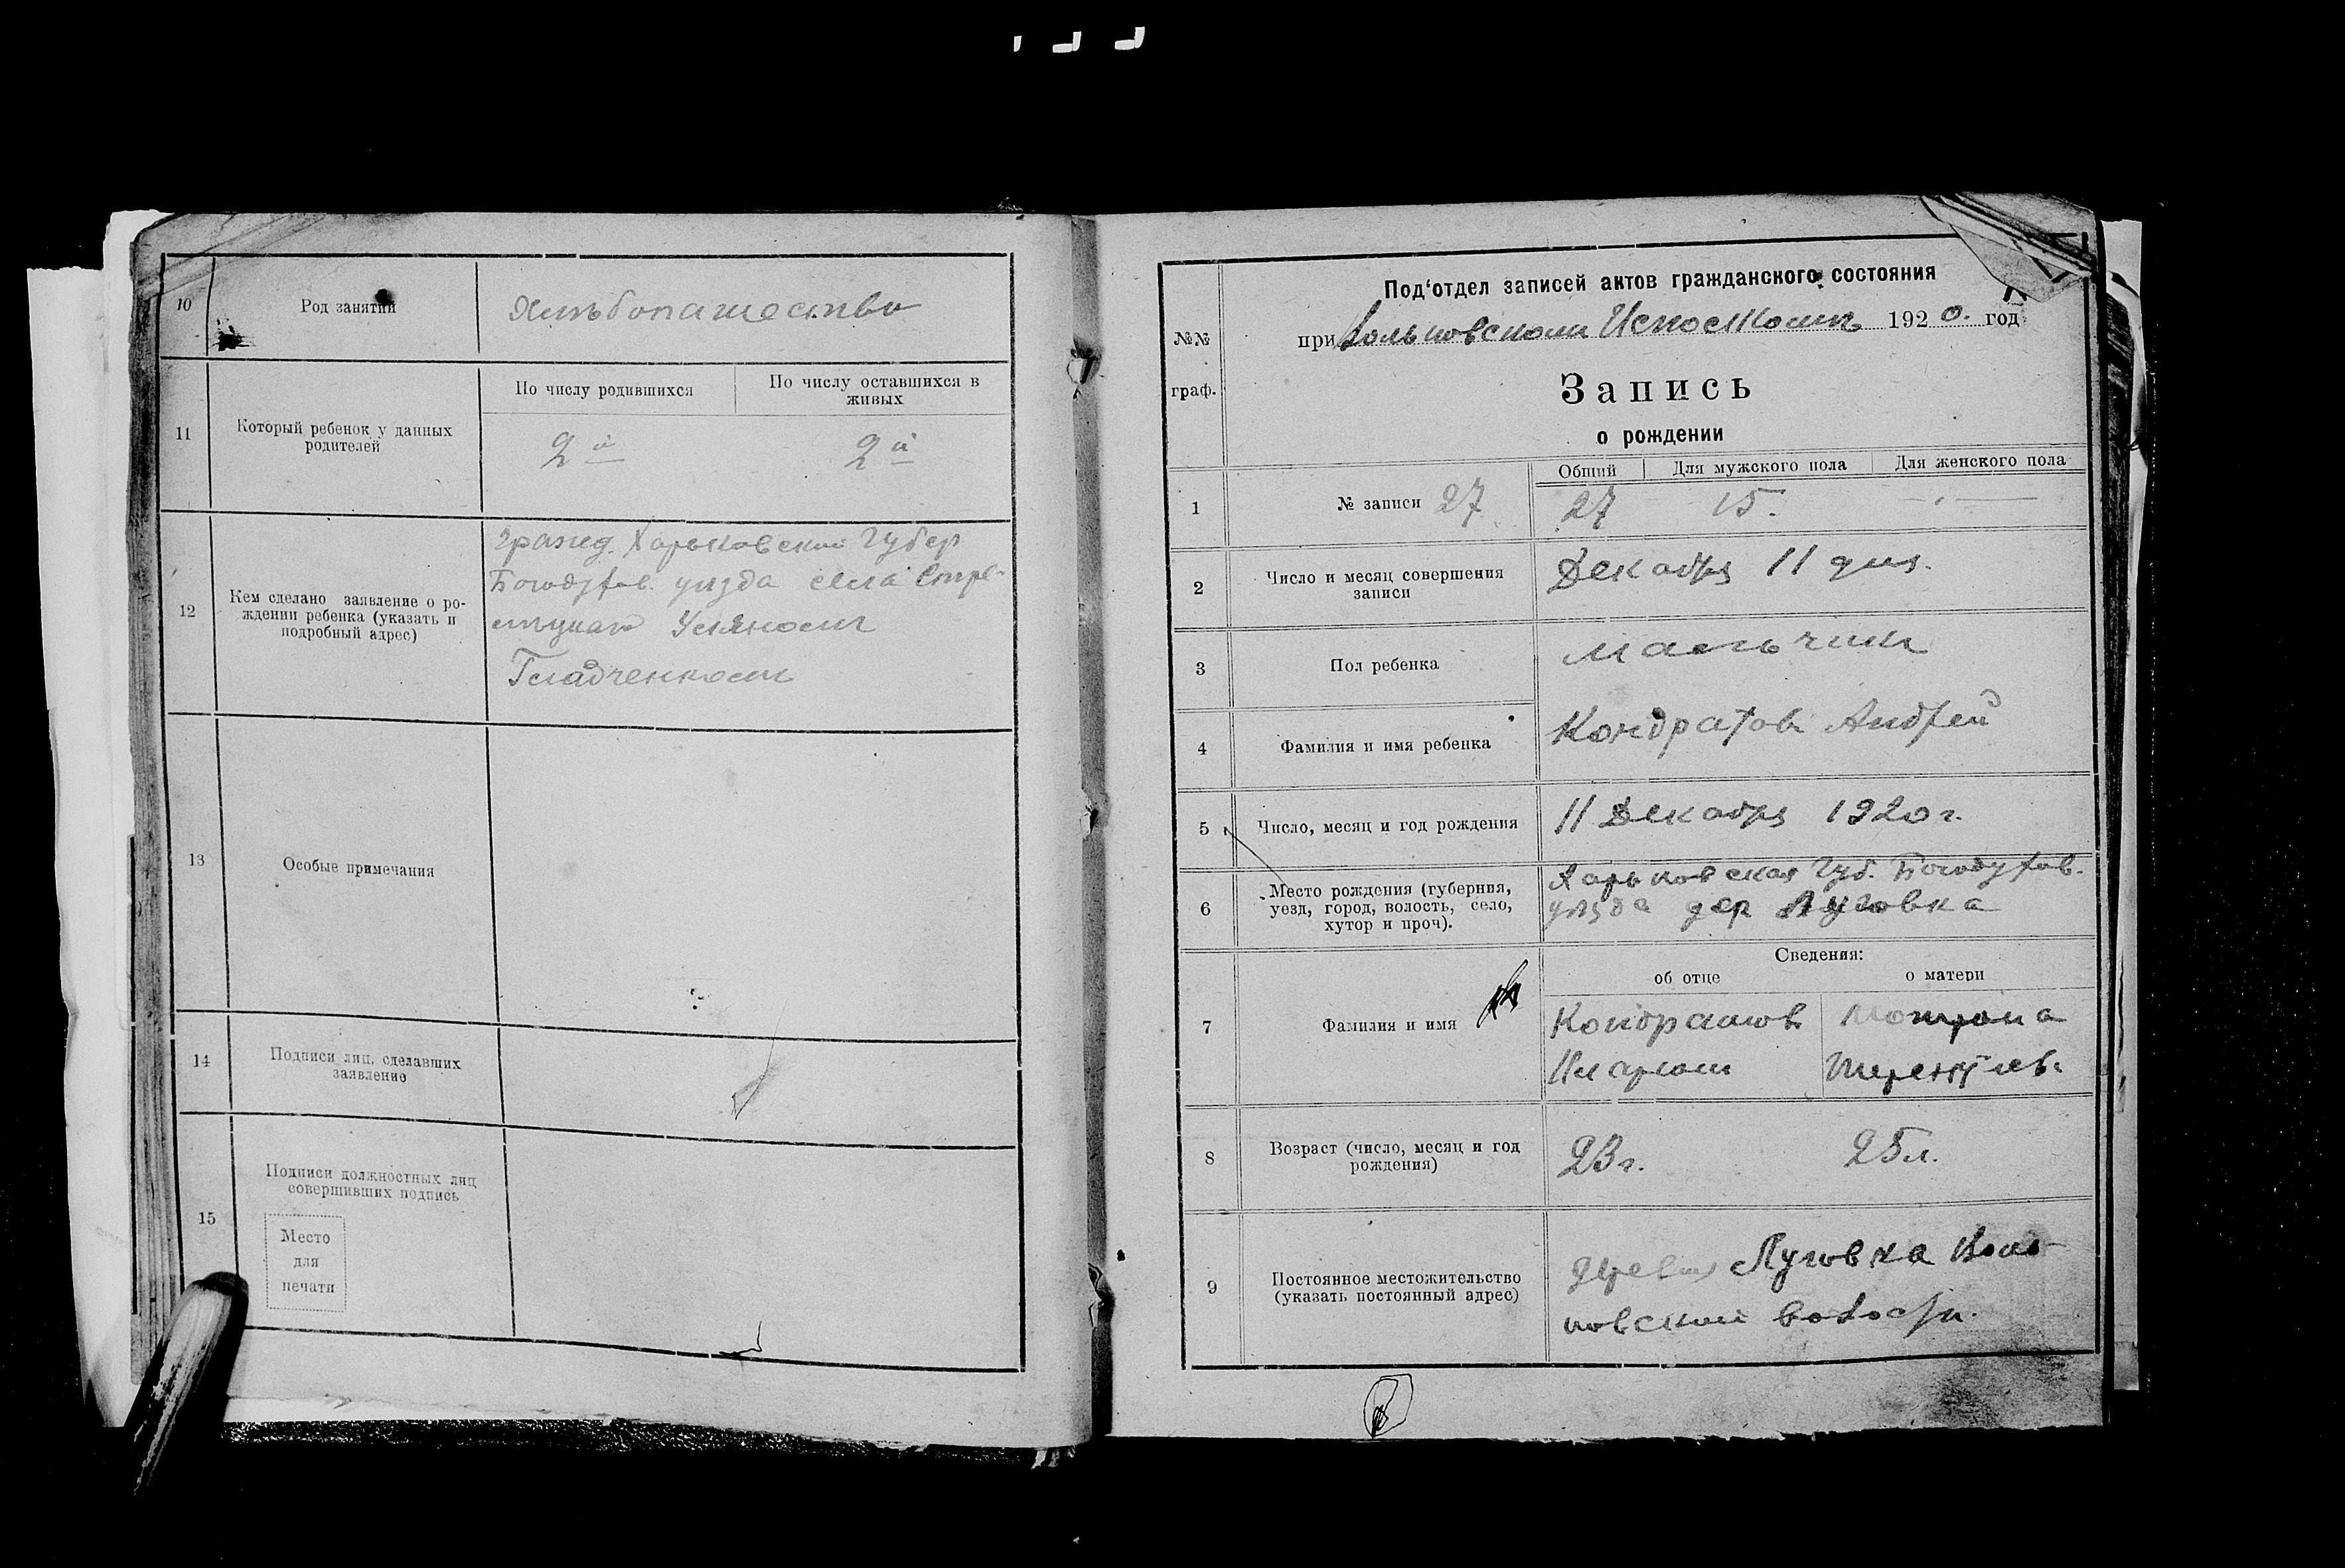 10
Род занятий
Хлѣбопашество
11
Который ребенок у данных
родителей
По числу родившихся
По числу оставшихся в
живых
2й
2й
12
Кем сделано заявление о ро-
ждении ребенка (указать и
подробный адрес)
Гражд. Харьковской Губер
Богодухов. уезда села
Гладченком
13
Особые примечания
14
Подписи лиц, сделавших
заявление
15
Подписи должностных лиц
совершивших подпись
Место
для
печати
№№
граф.
Под'отдел записей актов гражданского состояния
при 1920. год
Запись
о рождении
Общий
Для мужского пола
Для женского пола
1
№ записи 27
27
15.
—
2
Число и месяц совершения
записи
Декабря 11 дня.
3
Пол ребенка
Мальчик
4
Фамилия и имя ребенка
Кондратов Андрей
5
Число, месяц и год рождения
11 Декабря 1920 г.
6
Место рождения (губерния,
уезд, город, волость, село,
хутор и проч).
Харьковская Губ. Богодухов.
уезда дер Луговка
Сведения:
об отце
о матери
7
Фамилия и имя
Кондратов
Мотрона
8
Возраст (число, месяц и год
рождения)
23 г.
25 л.
9
Постоянное местожительство
(указать постоянный адрес)
деревня Луговка
повской волости.